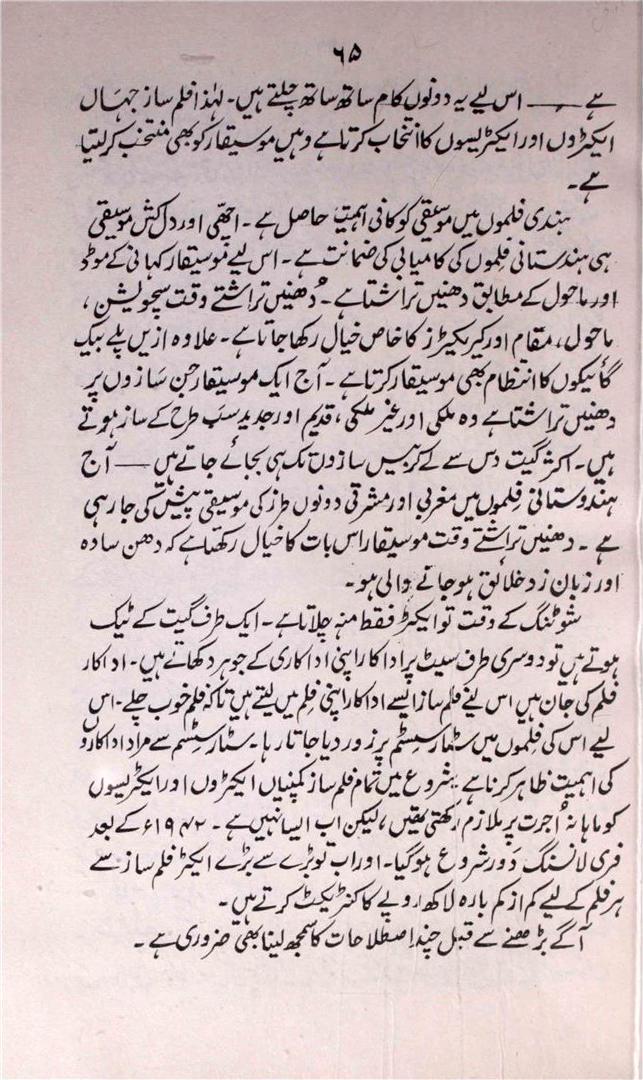 ۶۵
ہے ـــــ اس لیے یہ دونوں کام ساتھ ساتھ چلتے ہیں۔ لہٰذا فلم ساز جہاں
ایکٹروں اور ایکٹریسوں کا انتخاب کرتا ہے وہیں موسیقار کو بھی منتخب کر لیتا
ہے۔
ہندی فلموں میں موسیقی کو کافی اہمیت حاصل ہے۔ اچھی اور دل کش موسیقی
ہی ہندستانی فلموں کی کامیابی کی ضمانت ہے۔ اس لیے موسیقار کہانی کے موڈ
اور ماحول کے مطابق دھنیں تراشتا ہے۔ دُھنیں تراشتے وقت سچویشن،
ماحول، مقام اور کیریکٹرز کا خاص خیال رکھا جاتا ہے۔ علاوہ ازیں پلے بیک
گائیکوں کا انتظام بھی موسیقار کرتا ہے۔ آج ایک موسیقار جن سازوں پر
دھنیں تراشتا ہے وہ ملکی اور غیر ملکی، قدیم اور جدید سب طرح کے ساز ہوتے
ہیں۔ اکثر گیت دس سے لے کر بیس سازوں تک ہی بجائے جاتے ہیں ـــــ آج
ہندوستانی فلموں میں مغربی اور مشرقی دونوں طرز کی موسیقی پیش کی جا رہی
ہے۔ دھنیں تراشتے وقت موسیقار اس بات کا خیال رکھتا ہے کہ دھن سادہ
اور زبان زد خلائق ہو جانے والی ہو۔
شوٹنگ کے وقت تو ایکٹر فقط منہ چلاتا ہے۔ ایک طرف گیت کے ٹیک
ہوتے ہیں تو دوسری طرف سیٹ پر اداکار اپنی اداکاری کے جوہر دکھاتے ہیں۔ اداکار
فلم کی جان ہیں اس لیے فلم ساز ایسے اداکار اپنی فلم میں لیتے ہیں تاکہ فلم خوب چلے۔ اس
لیے اس کی فلموں میں سٹار سسٹم پر زور دیا جاتا رہا۔ سٹار سسٹم سے مراد اداکاروں
کی اہمیت ظاہر کرنا ہے۔ شروع میں تمام فلم ساز کمپنیاں ایکٹروں اور ایکٹریسوں
کو ماہانہ اجرت پر ملازم رکھتی تھیں، لیکن اب ایسا نہیں ہے۔ ۱۹۴۲ء کے بعد
فری لانسنگ دَور شروع ہو گیا۔ اور اب تو بڑے سے بڑے ایکٹر فلم ساز سے
ہر فلم کے لیے کم از کم بارہ لاکھ روپے کا کنٹریکٹ کرتے ہیں۔
آگے بڑھنے سے قبل چند اصطلاحات کا سمجھ لینا بھی ضروری ہے۔